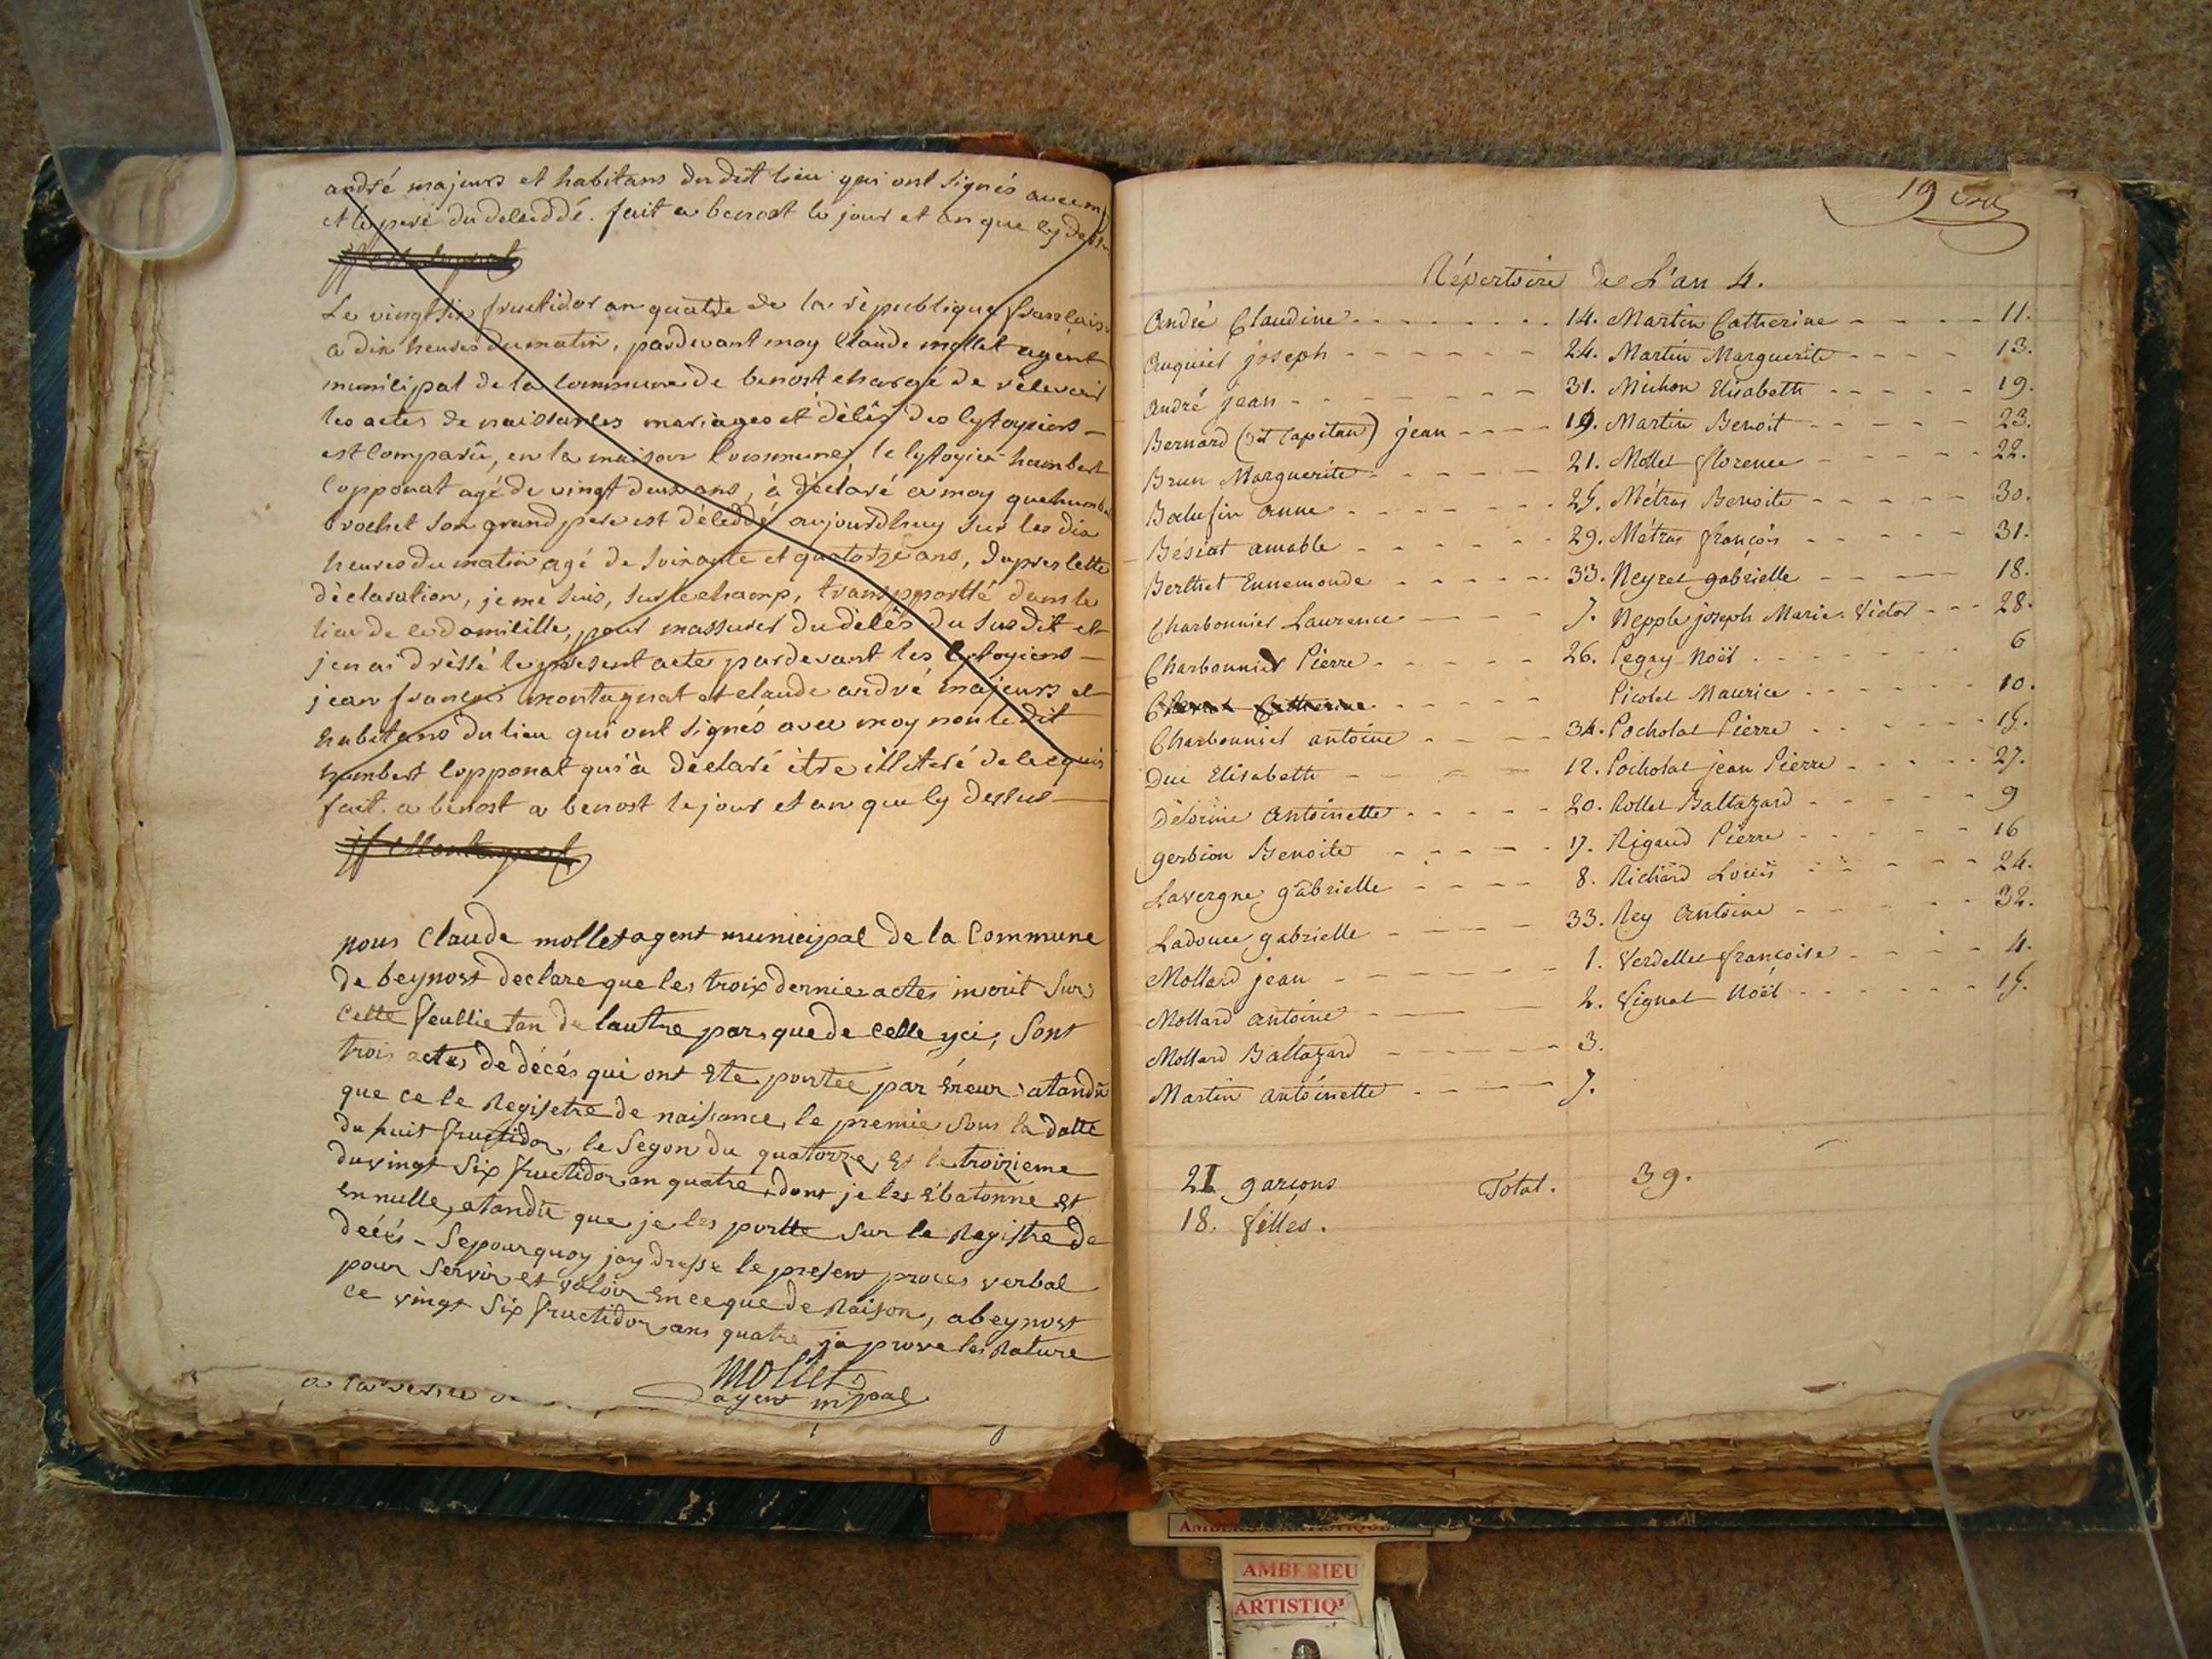 andré majeurs et habitans du dit lieu qui ont signés avec
et le pere du deceddé. fait a benost le jour et an que cy dessus
Le vingt six fructidor an quatre de la république francaise
a dix heures du matin, pardevant moy Claude mollet agent
municipal de la commune de benost chargé de recevoir
les actes de naissances mariages et décés des cytoyiens
est comparû, en la maison commune, le cytoyien humbert
Copponat agé de vingt deux ans, à déclaré a moy que humbert
brochet son grand pere est déceddé aujourdhuy sur les dix
heures du matin agé de soixante et quatorze ans, dapres cette
déclaration, je me suis, sur le champ, transpportté dans le
lieu de ce domicille, pour massurer du décés du susdit et
jen ai dréssé le present acte pardevant les cytoyiens
jean francois montagnat et claude andré majeurs et
habitans du lieu qui ont signés avec moy non le dit
humbert Copponat qui à déclaré être illiteré de ce quis
fait. a benost a benost le jour et an que cy dessus
jf Montagnat
nous Claude mollet agent municipal de la Commune
de beynost declare que les troix dernier actes inscrit sur
cette feullie tan de lautre par, que de celle yci, sont
trois actes de décés qui ont ete portee par éreur atandu
que ce le Registre de naissance, le premie sous la datte
du huit fructidor, le segon du quatorze, et le troizieme
du vingt six fructidor an quatre, dont je les ébatonne et
en nulle, atandu que je les portte sur le Registre de
décés - sepourquoy jay dresse le present proces verbal
pour servir et valoir en ce que de Raison, a beynost
ce vingt six fructidor ans quatre ja prove les Rature
mollet
agent mpal
19
Répertoire de L'an 4.
André Claudine 14.
Anquier joseph 24.
André jean 31.
Bernard (dit Capitan) jean 19.
Brun Marguerite 21.
Balufin Anne 25.
Bésiat amable 29.
Berthet Ennemonde 33.
Charbonnier Laurence 7.
Charbonnier Pierre 26.
Catherine
Charbonnier antoine 34.
Duc Elisabeth 12.
Délorme Antoinette 20.
gerbion Benoite 17.
Lavergne gabrielle 8.
Ladouce gabrielle 33.
Mollard jean 1.
Mollard antoine 2.
Mollard Baltazard 3.
Martin antoinette 7.
Martin Catherine 11.
Martin Marguerite 13.
Michon Elisabeth 19.
Martin Benoit 23.
Mollet florence 22.
Métras Benoite 30.
Métras françois 31.
Neyret gabrielle 18.
Nepple joseph Marie Victor 28.
Pegay Noël 6
Picolet Maurice 10.
Pocholat Pierre 15.
Pocholat jean Pierre 27.
Rollet Baltazard 9
Rigaud Pierre 16
Richard Louis 24.
Rey Antoine 32.
Verdellet françoise 4.
Vignat Noël 15.
21 garçons
Total. 39.
18. filles.
AMBERIEU
ARTISTIQ